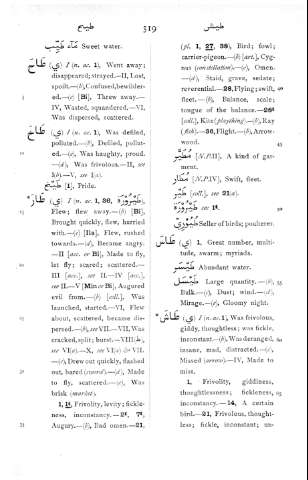 طيح
519
طيش
مَاء طَيِّب Sweet water.
طَاحَ (ي) I (n. ac. 1), Went away;
disappeared; strayed.—II, Lost,
spoilt.—(b), Confused, bewilder-
ed.—(c) [Bi], Threw away.—
IV, Wasted, squandered.—VI,
Was dispersed, scattered.
طَاخَ (ي) I (n. ac. 1), Was defiled,
polluted.—(b), Defiled, pollut-
ed.—(c), Was haughty, proud.
—(d), Was frivolous.—II, see
I(b).—V, see I(a).
طَيْخ [1], Pride.
طَارَ (ي) I (n. ac. 1, 36, طَيْرُورَة),
Flew; flew away.—(b) [Bi],
Brought quickly, flew, hurried
with.—(c) [Ila], Flew, rushed
towards.—(d), Became angry.
—II [acc. or Bi], Made to fly,
let fly; scared; scattered.—
III [acc.], see II.—IV [acc.],
see II.—V [Min or Bi], Augured
evil from.—(b) [coll.], Was
launched, started.—VI, Flew
about, scattered, became dis-
persed.—(b), see VII.—VII, Was
cracked, split; burst.—VIII,
see VI(a).—X, see VI(a) & VII.
—(c), Drew out quickly, flashed
out, bared (sword).—(d), Made
to fly, scattered.—(e), Was
brisk (market).
1, 1t, Frivolity, levity; fickle-
ness, inconstancy.—2t, 7t,
Augury.—(b), Bad omen.—21,
(pl. 1, 27, 36), Bird; fowl;
carrier-pigeon.—(b) [art.], Cyg-
nus (constellation).—(c), Omen.
—(d), Staid, grave, sedate;
reverential.—28, Flying; swift,
fleet.—(b), Balance, scale;
tongue of the balance.—28t
[coll.], Kite (plaything).—(b), Ray
(fish).—36, Flight.—Arrow-
wood.
مُطَيَّر [N.P.II], A kind of gar-
ment.
مُطَار [N.P.IV], Swift, fleet.
[coll.], see 21(a).
see 1t.
Seller of birds; poulterer.
طَاسَ (ي) 1, Great number, multi-
tude, swarm; myriads.
طَيْسَر Abundant water.
طَيْسَل Large quantity.—(b),
Bulk.—(c), Dust; wind.—(d),
Mirage.—(e), Gloomy night.
طَاشَ (ي) I (n. ac. 1), Was frivolous,
giddy, thoughtless; was fickle,
inconstant.—(b), Was deranged,
insane, mad, distracted.—(c),
Missed (arrow).—IV, Made to
miss.
1, Frivolity, giddiness,
thoughtlessness; fickleness,
inconstancy.—14, A certain
bird.—21, Frivolous, thought-
less; fickle, inconstant; un-